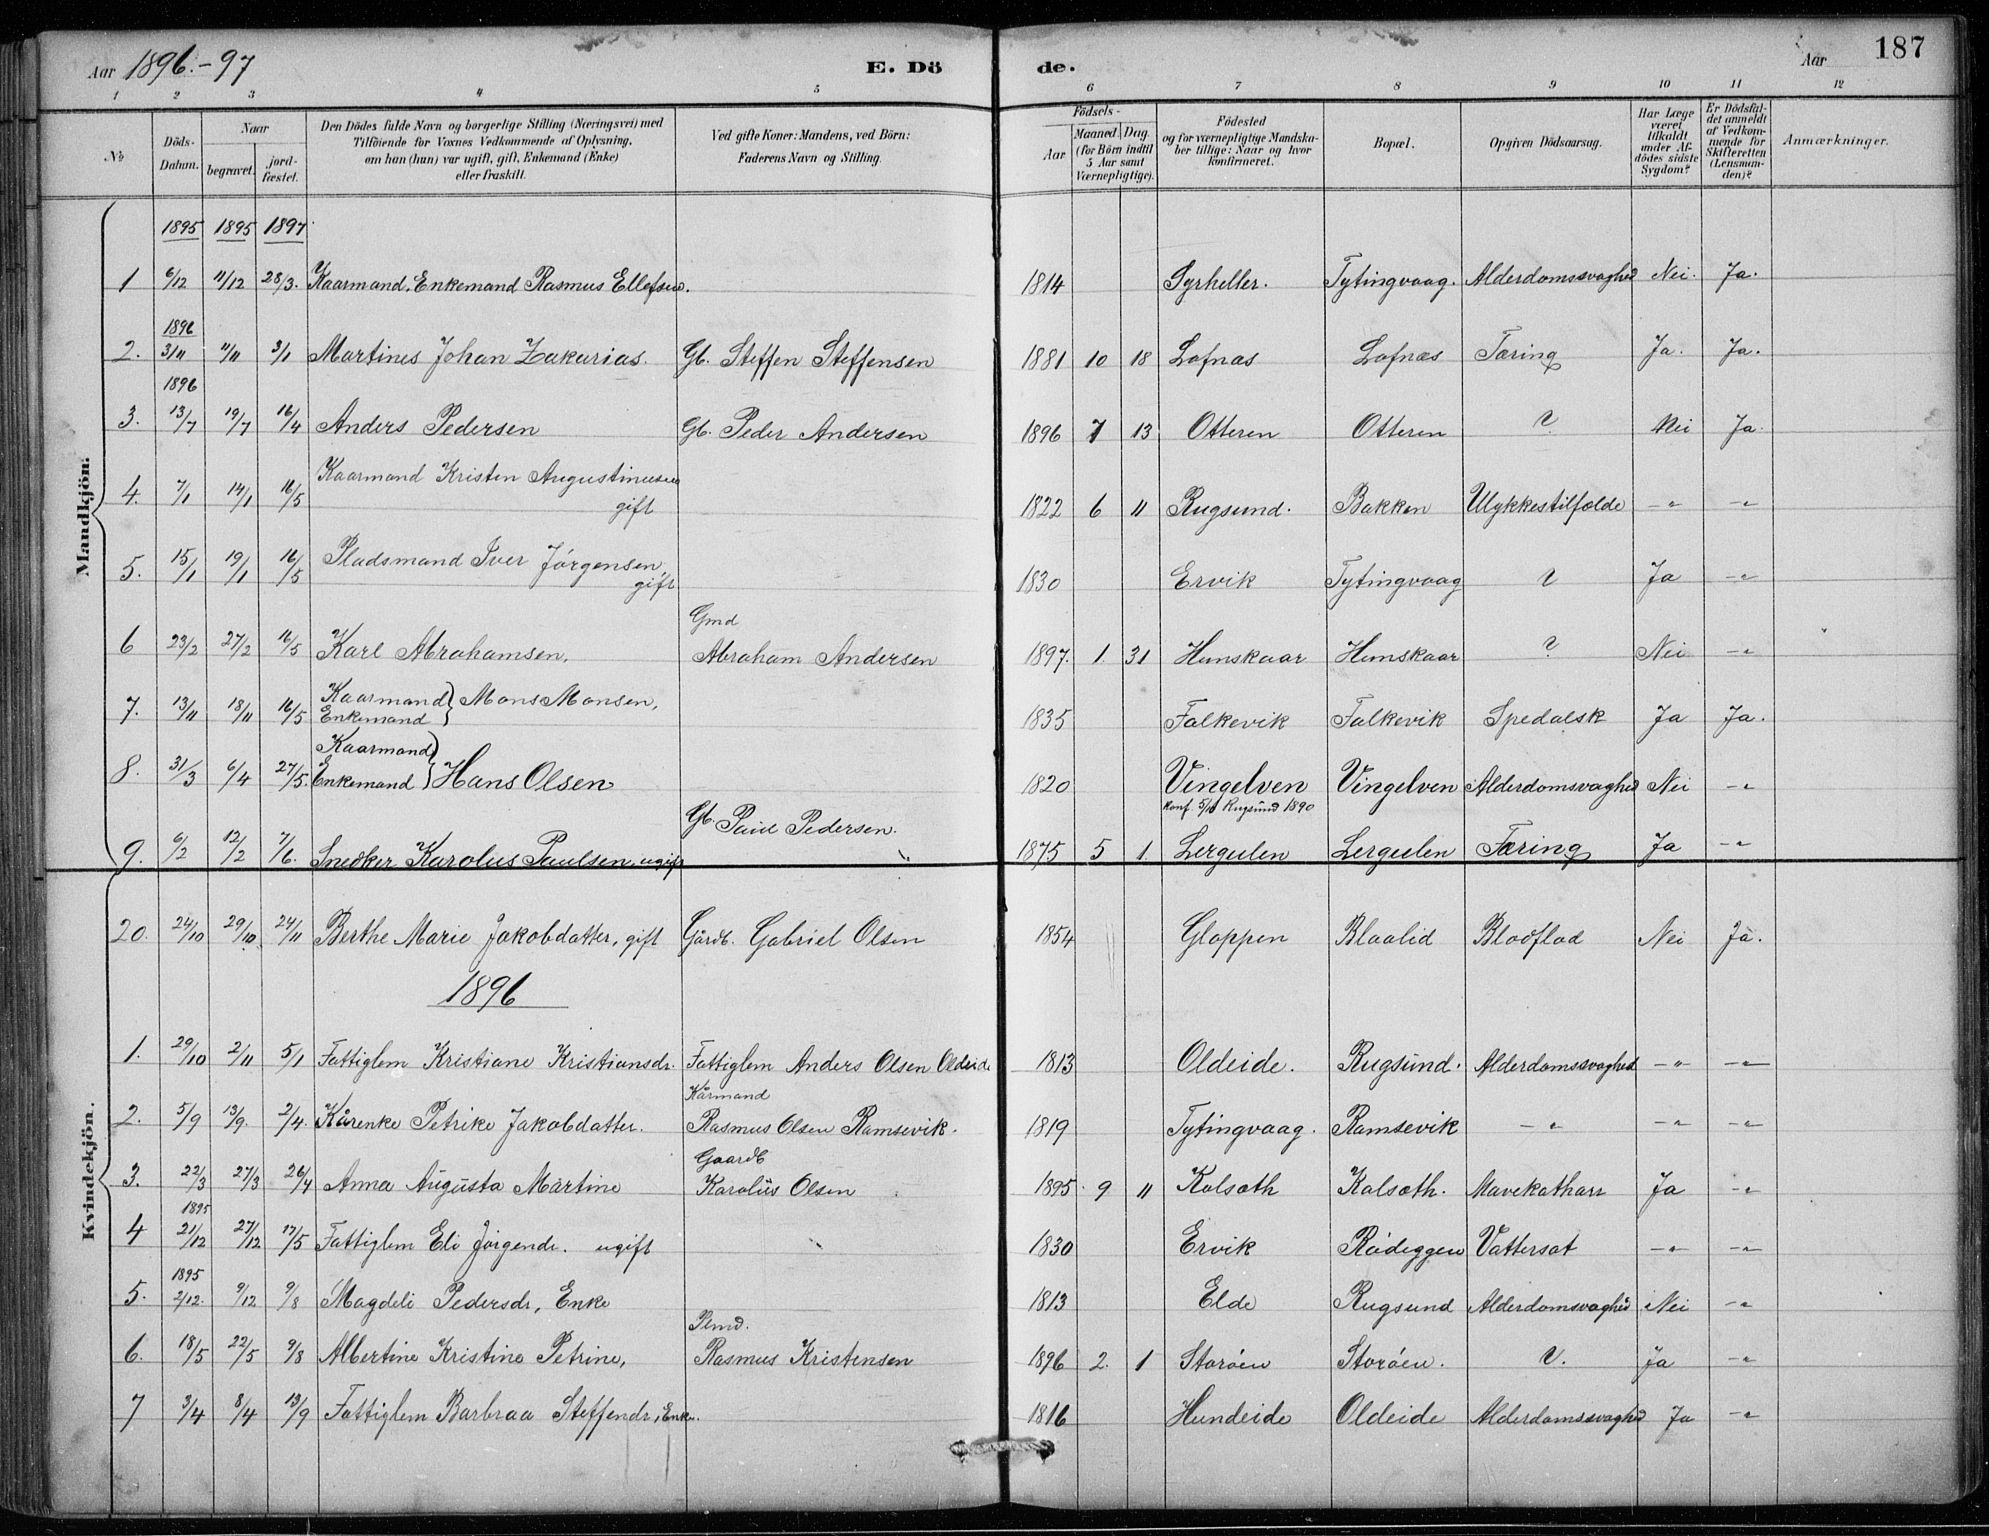 Aar 1896.-97 E. Dö de. Aar 187
1 2 3 4 5 6 7 8 9 10 11 12
No
Döds-Datum.
Naar
begravet.
jord-fæstet.
Den Dödes fulde Navn og borgerlige Stilling (Næringsvei) med
Tilföiende for Voxnes Vedkommende af Oplysning,
om han (hun) var ugift, gift, Enkemand (Enke)
eller fraskilt.
Ved gifte Koner: Mandens, ved Börn:
Faderens Navn og Stilling.
Födsels-
Aar
Maaned Dag.
(for Börn indtil
5 Aar samt
Værnepligtige).
Födested
og for værnepligtige Mandska-
ber tillige: Naar og hvor
konfirmeret.
Bopæl.
Opgiven Dödsaarsag.
Har Læge
været
tilkaldt
under Af-
dödes sidste
Sygdom?
Er Dödsfal-
det anmeldt
af Vedkom-
mende for
Skifteretten
(Lensman-
den)?
Anmærkninger.
Mandkjön.
1895 1895 1897
1 6/12 11/12 28/3. Kaarmand, Enkemand Rasmus Ellefsen. 1814 Syrheller. Tytingvaag. Alderdomssvaghed Nei. Ja.
1896
2. 3/11 11/11 3/1 Martines Johan Zakarias. Gb. Steffen Steffensen 1881 10 18 Lofnæs Lofnæs Tæring Ja. Ja.
1896
3. 13/7 19/7 16/4 Anders Pedersen Gb. Peder Andersen 1896 7 13 Otteren Otteren ? Nei Ja.
4. 7/1 14/1 16/5 Kaarmand Kristen Augustinusen
gift 1822 6 11 Rugsund. Bakken Ulykkestilfælde -"- -"-
5. 15/1 19/1 16/5 Pladsmand Iver Jörgensen,
gift 1830 Ervik Tytingvaag ? Ja -"-
Gmd
6 23/2 27/2 16/5 Karl Abrahamsen, Abraham Andersen 1897. 1. 31 Hunskaar Hunskaar ? Nei -"-
7. 13/11 18/11 16/5 Kaarmand
Enkemand } Mons Monsen, 1835 Falkevik Falkevik Spedalsk Ja Ja.
Kaarmand
8. 31/3 6/4 27/5. Enkemand } Hans Olsen 1820 Vingelven Vingelven Alderdomsvaghed Nei -"-
konf. 5/10 Rugsund 1890
Gb. Paul Pedersen.
9. 6/2 12/2 7/6. Snedker Karolus Paulsen, ugift 1875 5 1. Lergulen Lergulen Tæring Ja -"-
Kvindekjön.
20. 24/10 29/10 24/11 Berthe Marie Jakobdatter, gift Gårdb. Gabriel Olsen 1854 Gloppen Blaalid Blodflod Nei Ja.
1896
1. 29/10 2/11 5/1 Fattiglem Kristiane Kristiansdr. Fattiglem Anders Olsen Oldeide 1813 Oldeide. Rugsund. Alderdomssvaghed -"- -"-
Kårmand
2. 5/9 13/9. 2/4. Kårenke Petrike Jakobdatter. Rasmus Olsen Ramsevik. 1819 Tytingvaag. Ramsevik -"- -"- -"-
Gaardb
3. 22/3 27/3 26/4 Anna Augusta Martine Karolus Olsen 1895 9 11 Kalsoth Kalsoth. Mavekatharr Ja -"-
1895
4 21/12 27/12 17/5 Fattiglem Eli Jörgendr. ugift 1830 Ervik Rödeggen Vattersot -"- -"-
1895
5. 2/12. 9/12 9/8 Magdeli Pedersdr, Enke 1813 Elde Rugsund Alderdomsvaghed Nei -"-
Plmd.
6. 18/5 22/5 9/8 Albertine Kristine Petrine, Rasmus Kristensen 1896 2. 1 Storöen Storöen. ?. Ja -"-
7 3/4 8/4 13/9 Fattiglem Barbraa Steffendr, Enke. 1816 Hundeide Oldeide Alderdomssvaghed Ja -"-